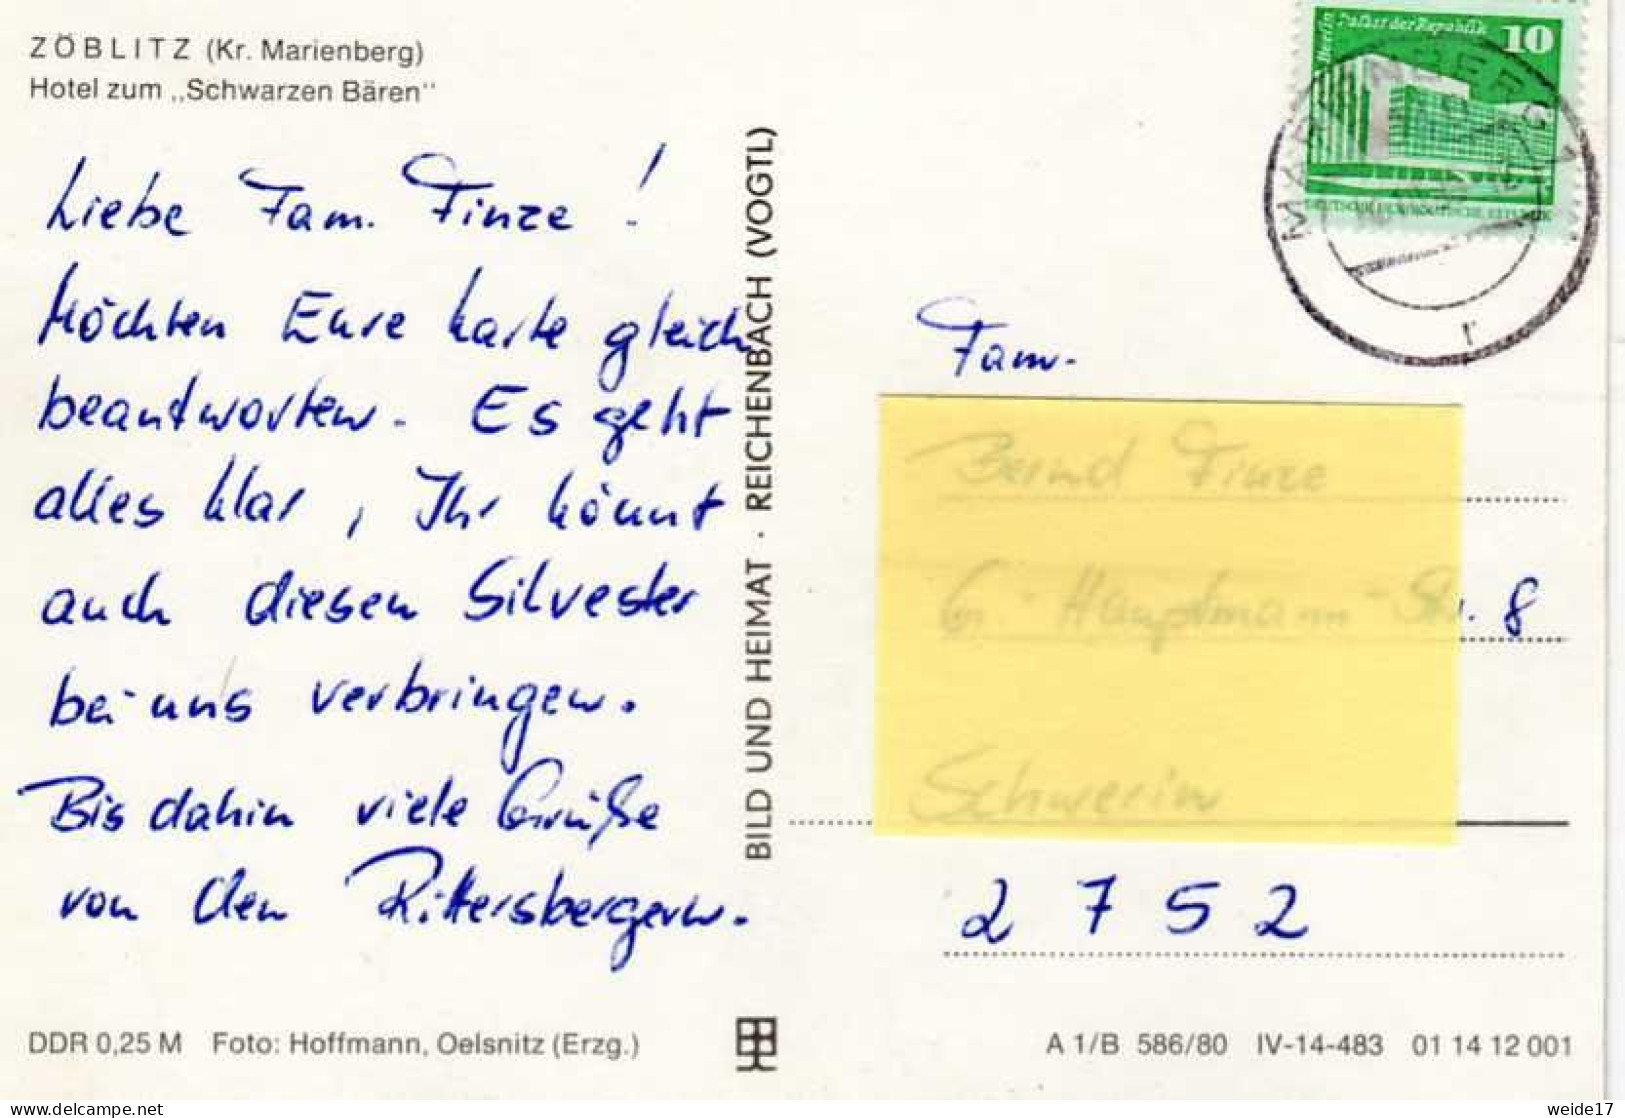 ZÖBLITZ (Kr. Marienberg)
Hotel zum „Schwarzen Bären"
Liebe Fam. Finze!
Möchten Eure Karte gleich
beantworten. Es geht
alles klar, Ihr könnt
auch diesen Silvester
bei uns verbringen.
Bis dahin viele Grüße
von den Rittersbergern.
BILD UND HEIMAT · REICHENBACH (VOGTL)
Berlin Palast der Republik 10
DEUTSCHE DEMOKRATISCHE REPUBLIK
MARIENBERG 1
r
Fam.
Bernd Finze
G.-Hauptmann-Str. 8
Schwerin
2752
DDR 0,25 M Foto: Hoffmann, Oelsnitz (Erzg.)
A 1/B 586/80 IV-14-483 01 14 12 001
www.delcampe.net
weide17